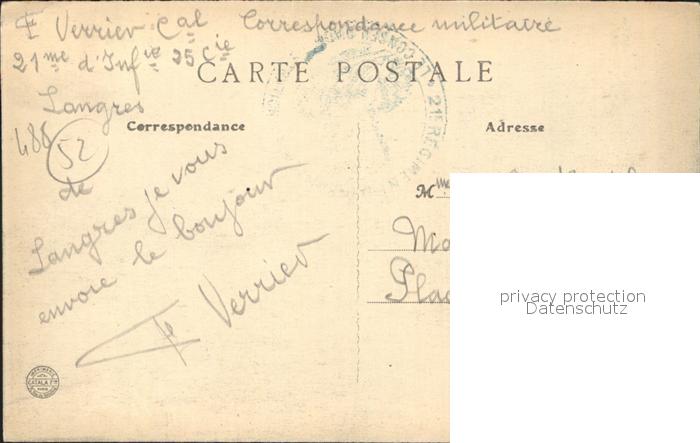 F Verrier Cal Correspondance militaire
21me d'Infie 25 Cie
CARTE POSTALE
Langres
488
52
Correspondance
Adresse
de
Langres je vous
envoie le bonjour
F Verrier
21E REGIMEN
Mme
Ma
Plac
IMPRIMERIES
CATALA FRES
PARIS
privacy protection
Datenschutz